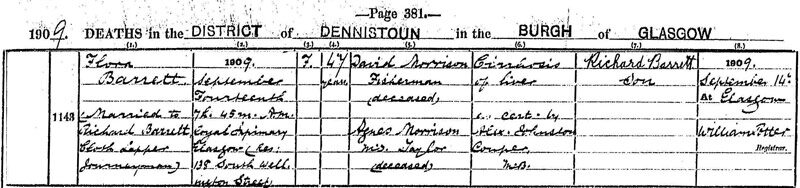 —Page 381.—
1909. DEATHS in the DISTRICT of DENNISTOUN in the BURGH of GLASGOW
(1.) (2.) (3.) (4.) (5.) (6.) (7.) (8.)
1143
Flora
Barrett
(Married to
Richard Barrett
Cloth Lapper
Journeyman)
1909.
September
Fourteenth
7h. 45m. A.M.
Royal Infirmary
Glasgow (Res:
135 South Well
ington Street
F.
47
years
David Morrison
Fisherman
(deceased)
Agnes Morrison
m.s. Taylor
(deceased)
Cirrhosis
of liver
cert. by
Alex. Johnston
Couper
M.B.
Richard Barrett
Son
1909.
September 14th
At Glasgow
William
Registrar.